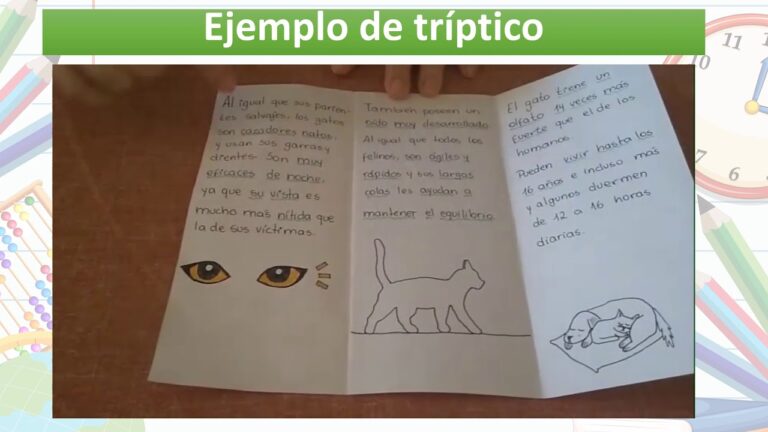 Ejemplo de tríptico
Al igual que sus parien-
tes salvajes, los gatos
son cazadores natos,
y usan sus garras y
dientes. Son muy
eficaces de noche,
ya que su vista es
mucho más nítida que
la de sus víctimas.
También poseen un
oído muy desarrollado.
Al igual que todos los
felinos, son ágiles y
rápidos y sus largas
colas les ayudan a
mantener el equilibrio.
El gato tiene un
olfato 14 veces más
fuerte que el de los
humanos.
Pueden vivir hasta los
16 años e incluso más
y algunos duermen
de 12 a 16 horas
diarias.
11
12
10
1
5
6
7